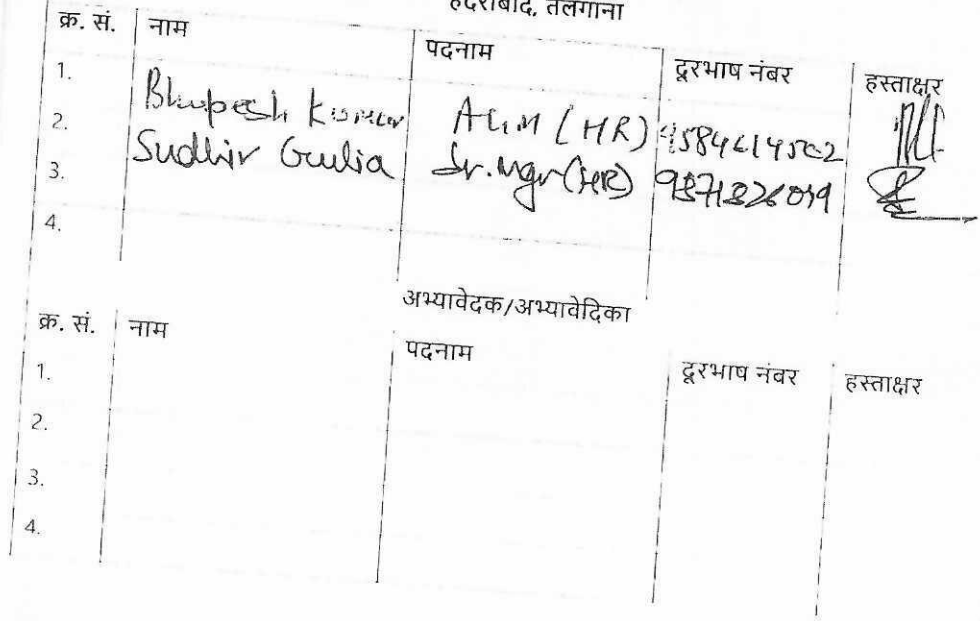 हैदराबाद, तेलंगाना
क्र. सं. नाम पदनाम दूरभाष नंबर हस्ताक्षर
1. Bhupesh Kumar AGM (HR)
2. Sudhir Gulia Sr. Mgr (HR)
3.
4.
अभ्यावेदक/अभ्यावेदिका
क्र. सं. नाम पदनाम दूरभाष नंबर हस्ताक्षर
1.
2.
3.
4.